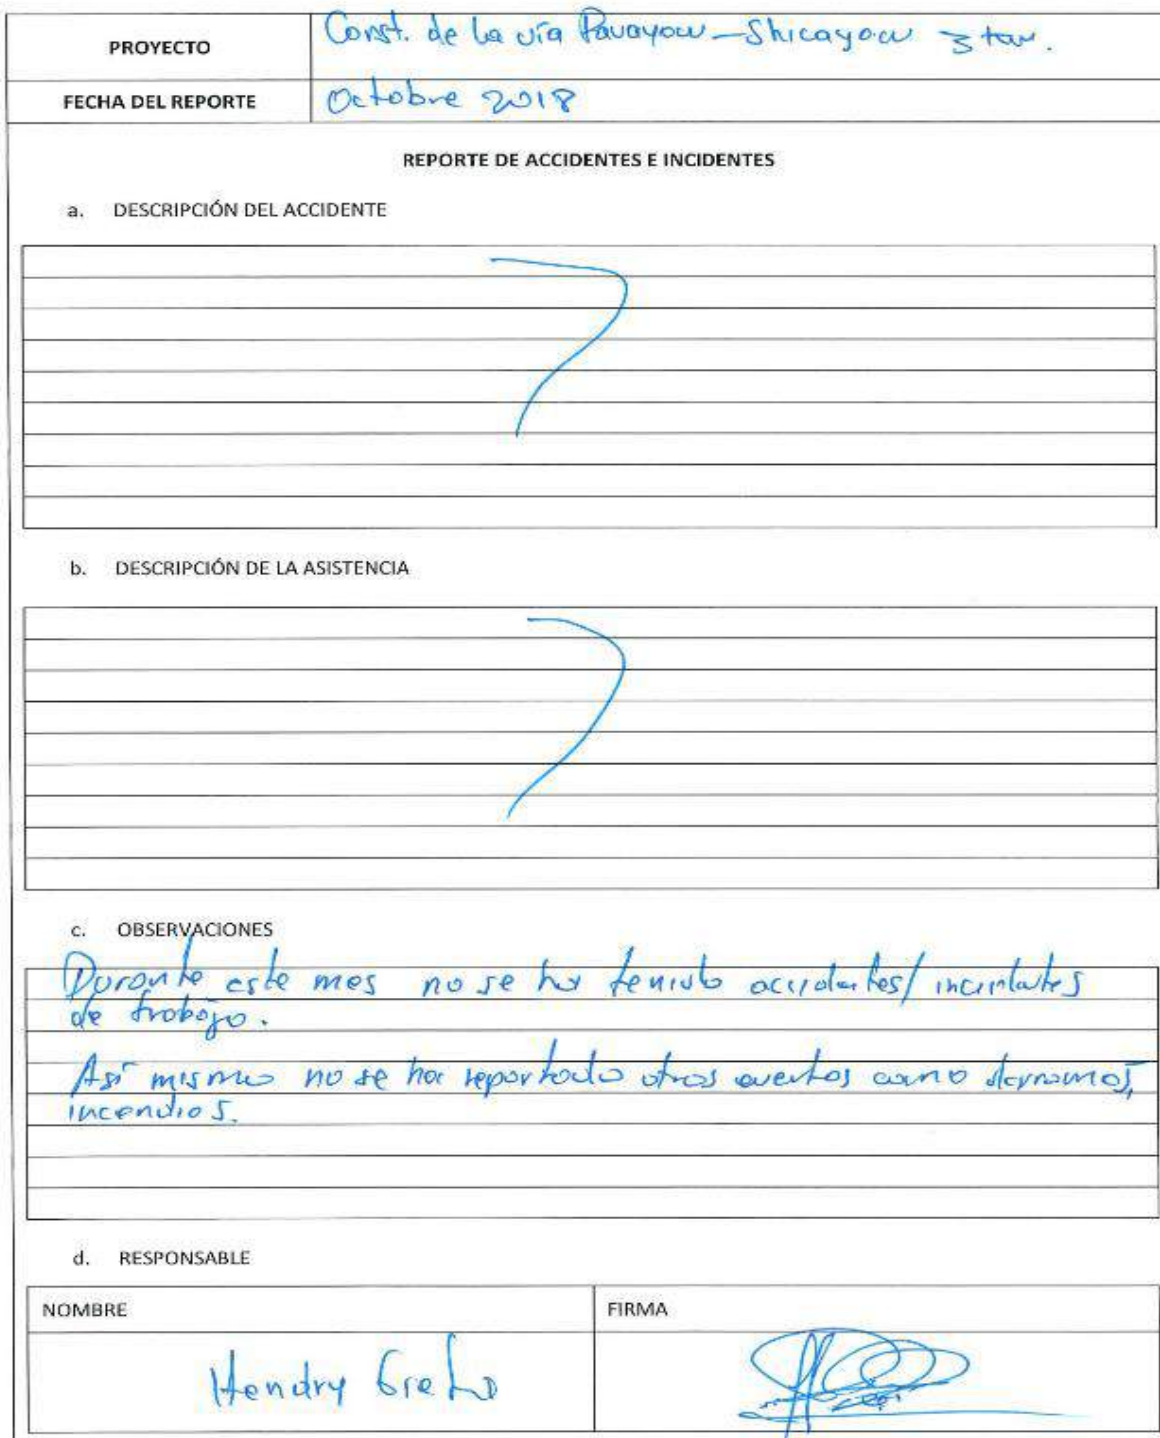 PROYECTO
Const. de la vía Pavayacu - Shicayacu 3 tan.
FECHA DEL REPORTE
Octobre 2018
REPORTE DE ACCIDENTES E INCIDENTES
a. DESCRIPCIÓN DEL ACCIDENTE
b. DESCRIPCIÓN DE LA ASISTENCIA
c. OBSERVACIONES
Durante este mes no se ha tenido accidentes/incidentes
de trabajo.
Así mismo no se ha reportado otros eventos como derrames,
incendios.
d. RESPONSABLE
NOMBRE
FIRMA
Hendry